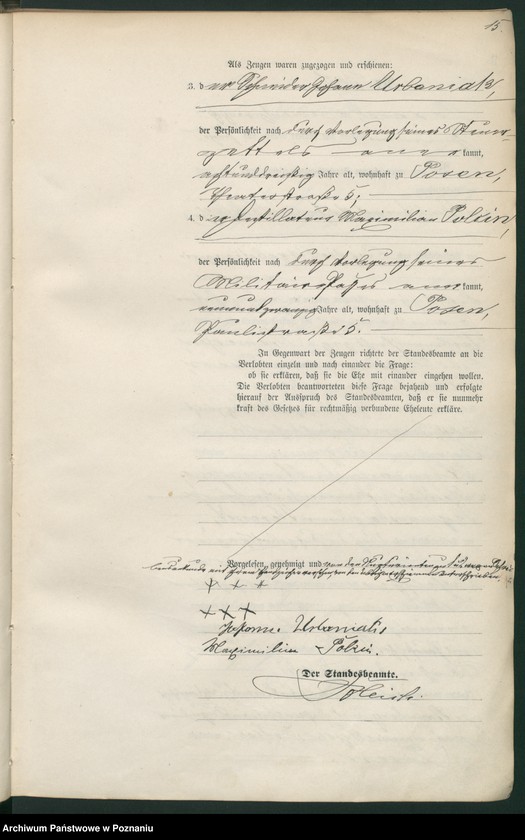 15.
Als Zeugen waren zugezogen und erschienen:
3. der Schneider Johann Urbaniak,
der Persönlichkeit nach durch Vorlegung seines Steuer-
zettels anerkannt,
achtunddreißig Jahre alt, wohnhaft zu Posen,
Theaterstraße 5;
4. der Destillateur Maximilian Polzin,
der Persönlichkeit nach durch Vorlegung seines
Militairpasses anerkannt,
neunundzwanzig Jahre alt, wohnhaft zu Posen,
Paulistraße 5.
In Gegenwart der Zeugen richtete der Standesbeamte an die
Verlobten einzeln und nach einander die Frage:
ob sie erklären, daß sie die Ehe mit einander eingehen wollen.
Die Verlobten beantworteten diese Frage bejahend und erfolgte
hierauf der Ausspruch des Standesbeamten, daß er sie nunmehr
kraft des Gesetzes für rechtmäßig verbundene Eheleute erkläre.
Vorgelesen, genehmigt und von den
+ + +
+ + +
Johann Urbaniak
Maximilian Polzin.
Der Standesbeamte.
Archiwum Państwowe w Poznaniu